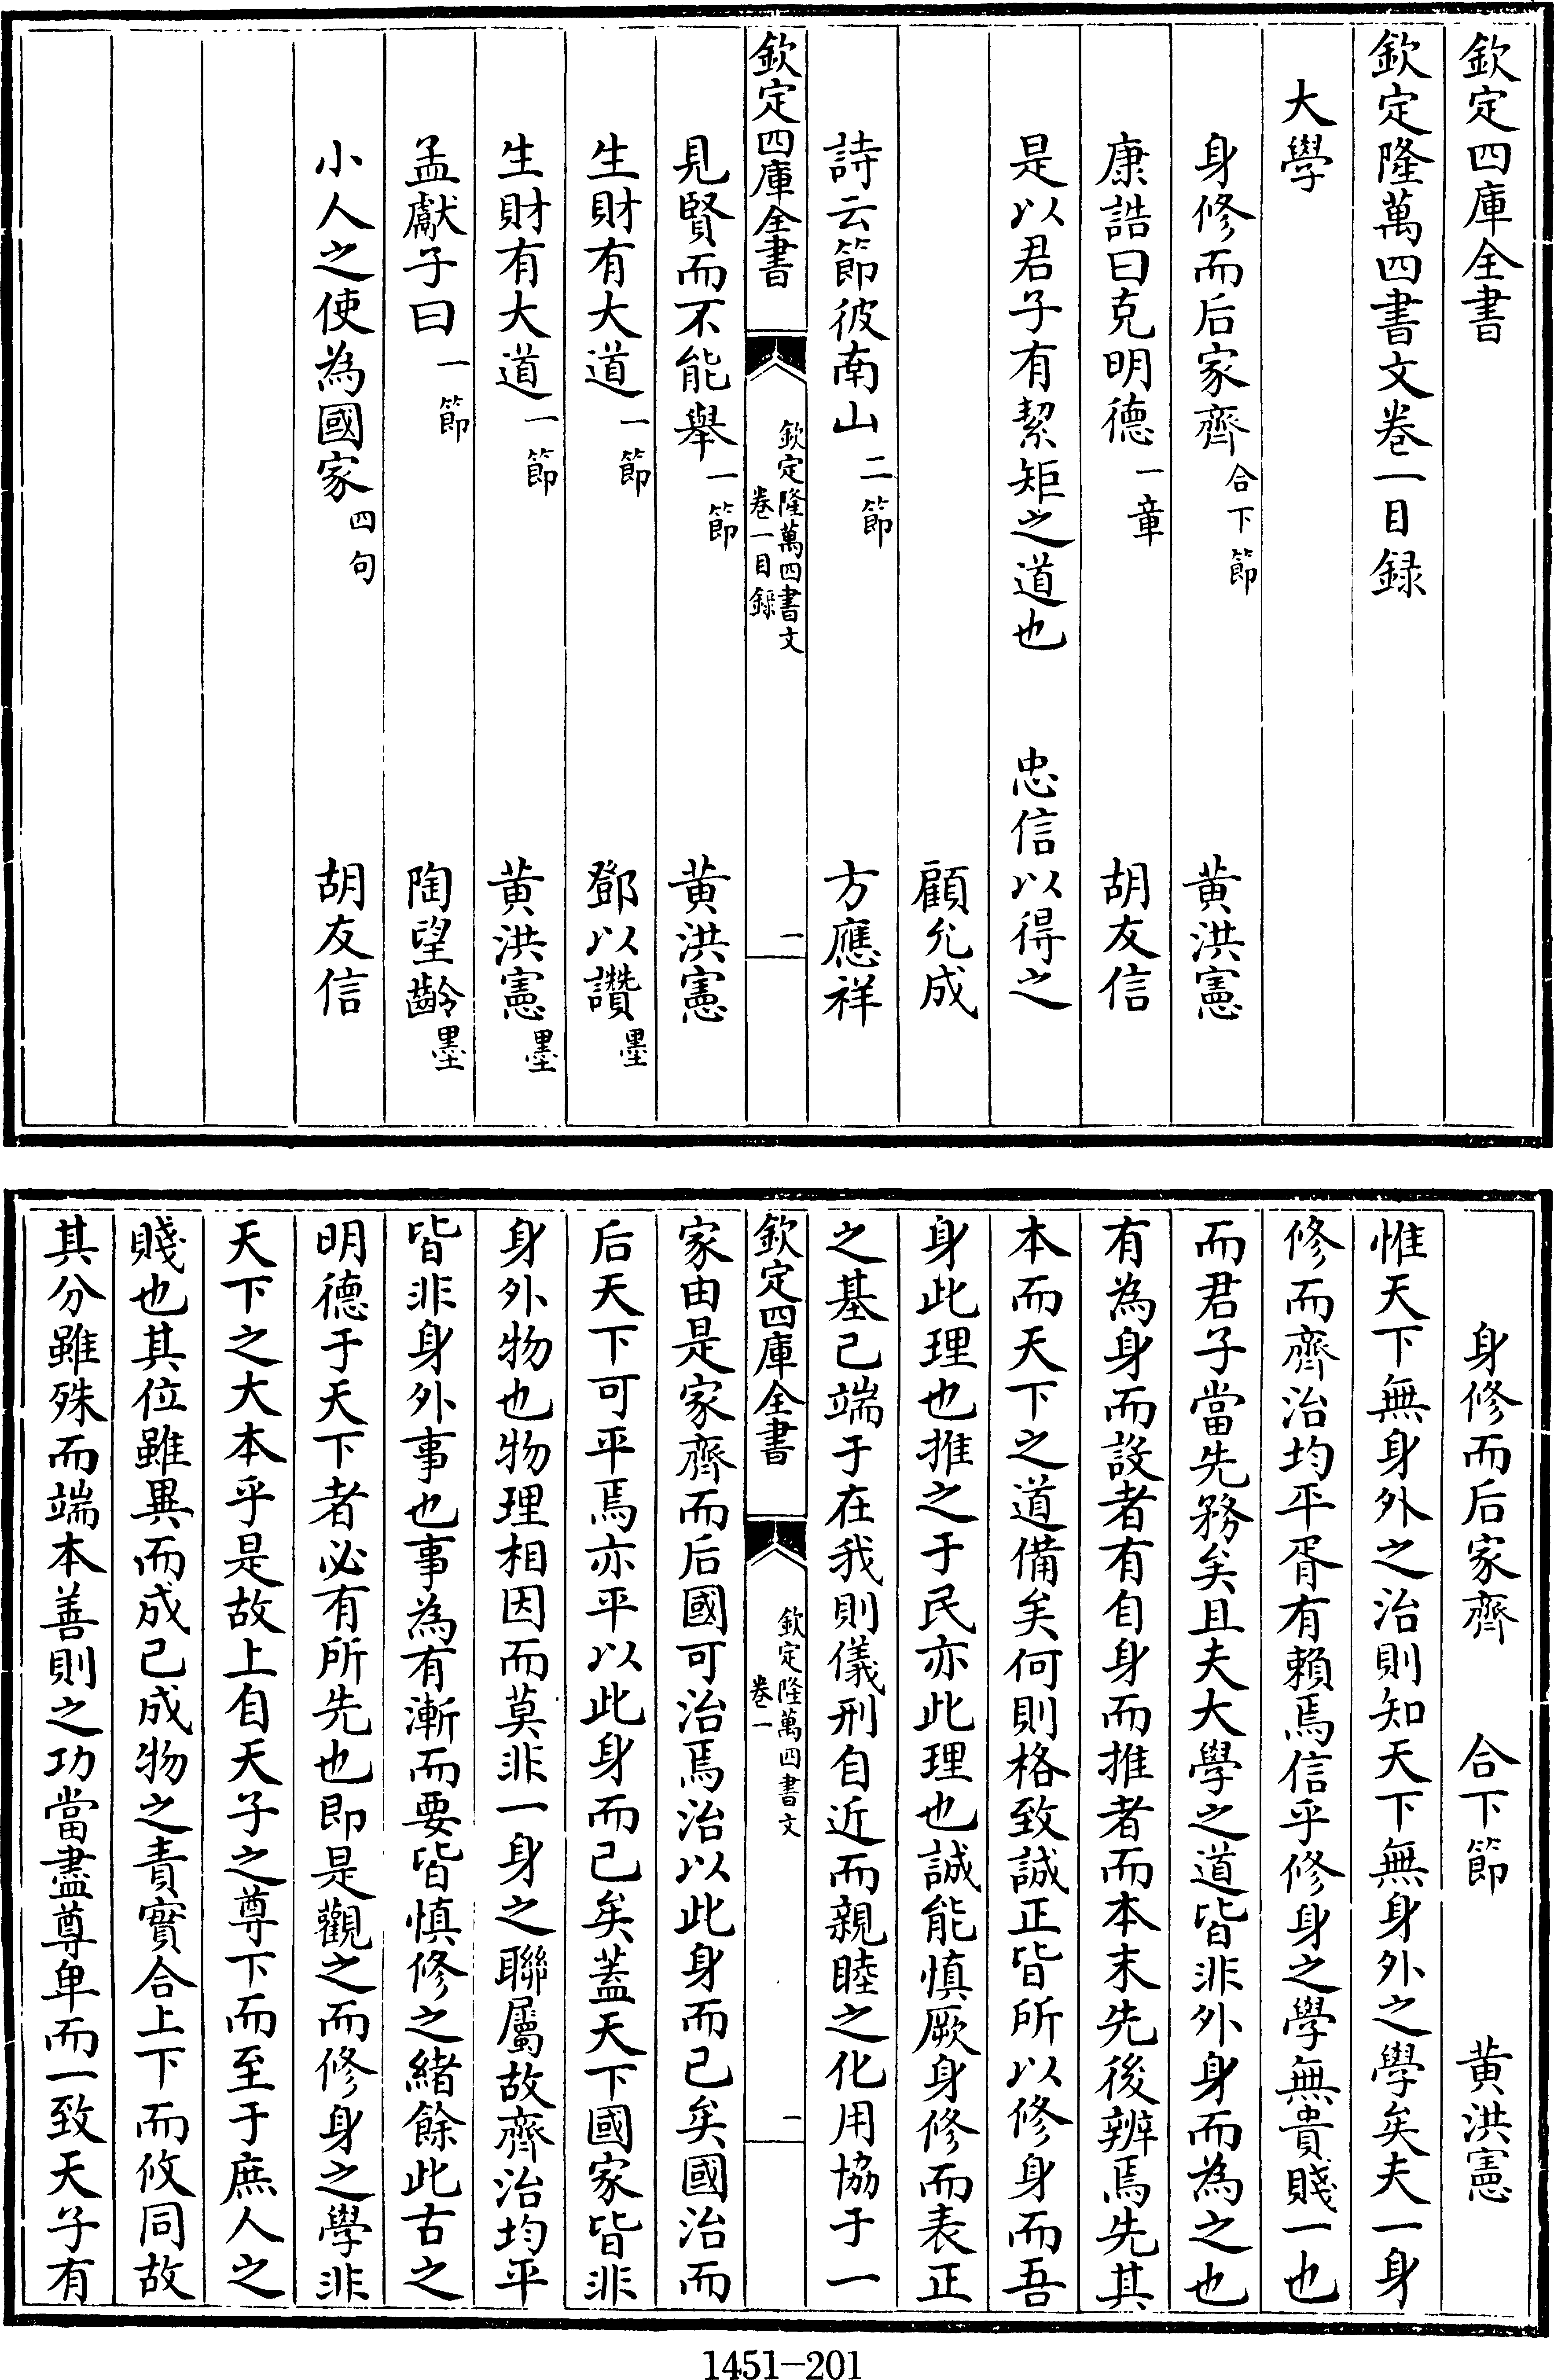 欽定四庫全書
欽定隆萬四書文卷一目録
大學
身修而后家齊 合下節 黄洪憲
康誥曰克明德 一章 胡友信
是以君子有絜矩之道也 忠信以得之
顧允成
詩云節彼南山 二節 方應祥
欽定四庫全書 欽定隆萬四書文 卷一目録 一
見賢而不能舉 一節 黄洪憲
生財有大道 一節 鄧以讚 墨
生財有大道 一節 黄洪憲 墨
孟獻子曰 一節 陶望齡 墨
小人之使為國家 四句 胡友信
身修而后家齊 合下節 黄洪憲
惟天下無身外之治則知天下無身外之學矣夫一身
修而齊治均平胥有賴焉信乎修身之學無貴賤一也
而君子當先務矣且夫大學之道皆非外身而為之也
有為身而設者有自身而推者而本末先後辨焉先其
本而天下之道備矣何則格致誠正皆所以修身而吾
身此理也推之于民亦此理也誠能慎厥身修而表正
之基已端于在我則儀刑自近而親睦之化用協于一
欽定四庫全書 欽定隆萬四書文 卷一 一
家由是家齊而后國可治焉治以此身而已矣國治而
后天下可平焉亦平以此身而已矣蓋天下國家皆非
身外物也物理相因而莫非一身之聯屬故齊治均平
皆非身外事也事為有漸而要皆慎修之緒餘此古之
明德于天下者必有所先也即是觀之而修身之學非
天下之大本乎是故上自天子之尊下而至于庶人之
賤也其位雖異而成己成物之責實合上下而攸同故
其分雖殊而端本善則之功當盡尊卑而一致天子有
1451-201